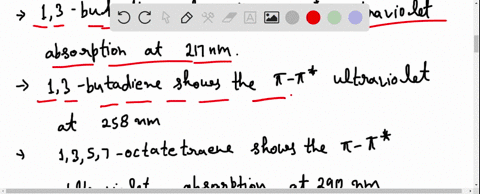 → 1,3-but ultraviolet
absorption at 217 nm.
→ 1,3-butadiene shows the π-π* ultraviolet
at 258 nm
→ 1,3,5,7-octatetraene shows the π-π*
absorption at 290 nm